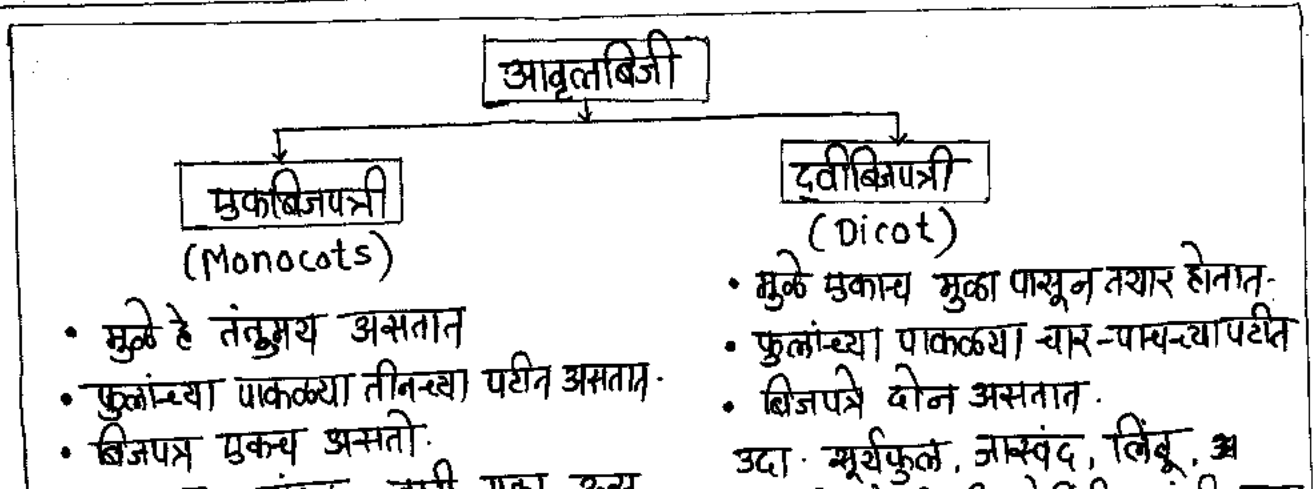 आवृत्तबिजी
एकबिजपत्री
(Monocots)
• मुळे हे तंतुमय असतात
• फुलांच्या पाकळ्या तीनच्या पटीत असतात.
• बिजपत्र एकच असतो.
द्वीबिजपत्री
(Dicot)
• मुळे एकाच मुळा पासून तयार होतात.
• फुलांच्या पाकळ्या चार-पाचच्या पटीत
• बिजपत्रे दोन असतात.
उदा. सूर्यफुल, जास्वंद, लिंबू,